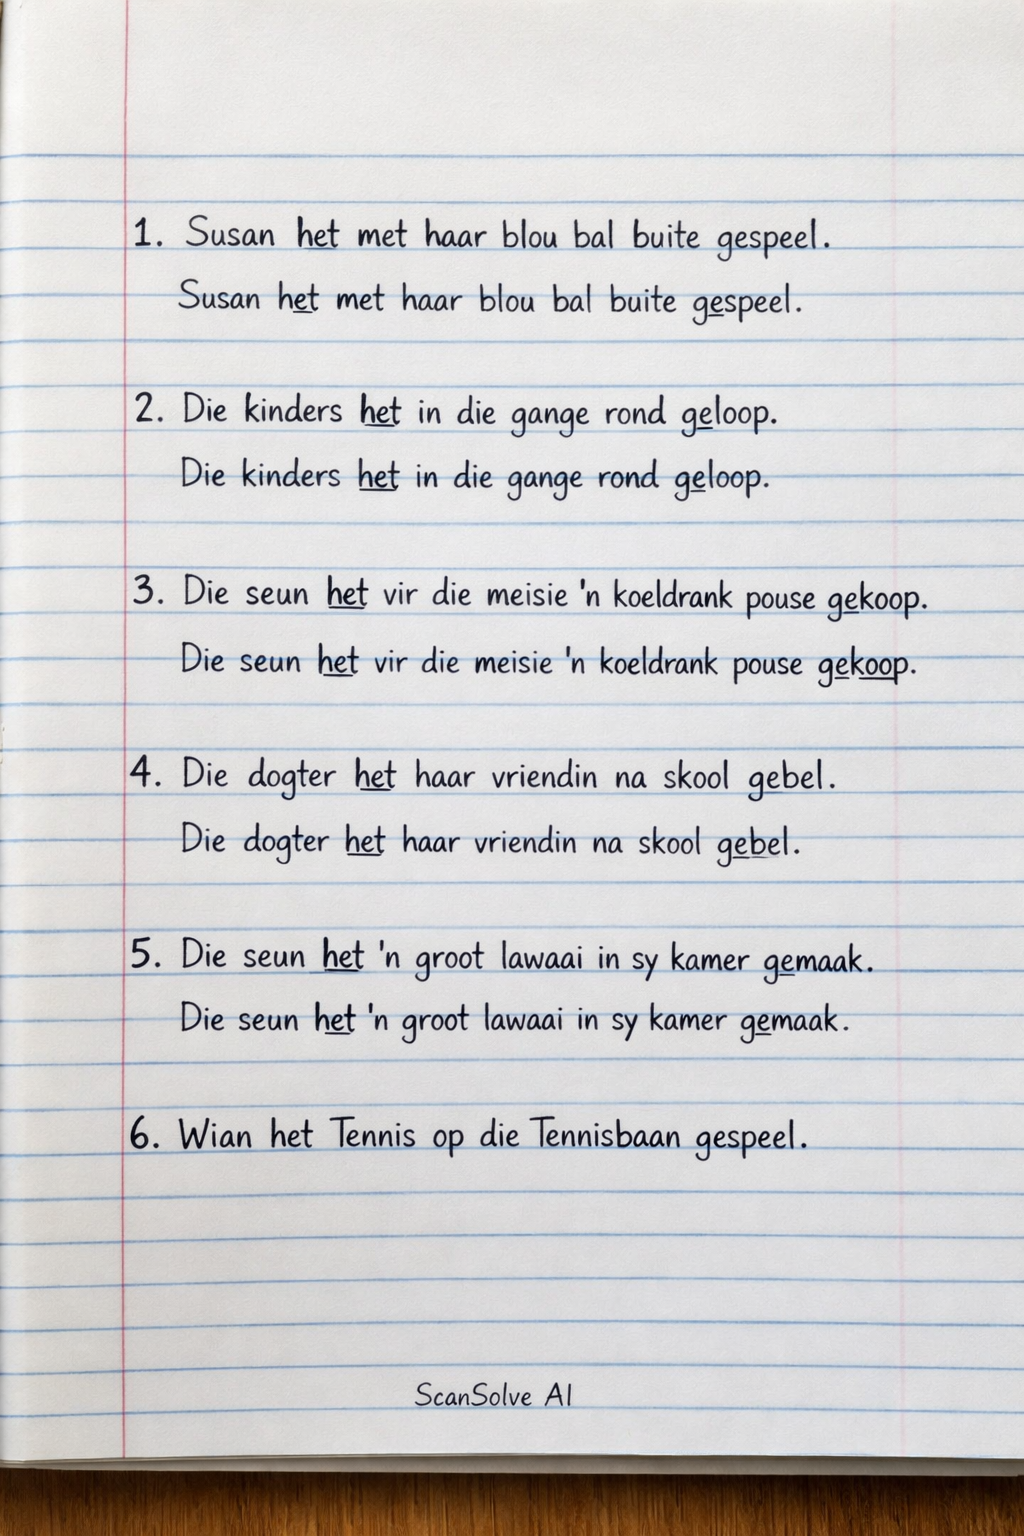 1. Susan het met haar blou bal buite gespeel.
Susan het met haar blou bal buite gespeel.
2. Die kinders het in die gange rond geloop.
Die kinders het in die gange rond geloop.
3. Die seun het vir die meisie 'n koeldrank pouse gekoop.
Die seun het vir die meisie 'n koeldrank pouse gekoop.
4. Die dogter het haar vriendin na skool gebel.
Die dogter het haar vriendin na skool gebel.
5. Die seun het 'n groot lawaai in sy kamer gemaak.
Die seun het 'n groot lawaai in sy kamer gemaak.
6. Wian het Tennis op die Tennisbaan gespeel.
ScanSolve AI